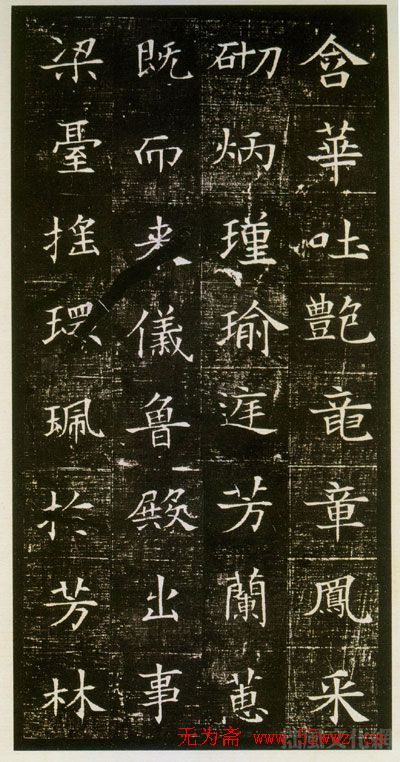 含華吐艷竜章鳳采
砌炳瑾瑜庭芳蘭蕙
既而来儀魯殿出事
梁臺搖環珮於芳林
无为斋 www.52wwz.cn